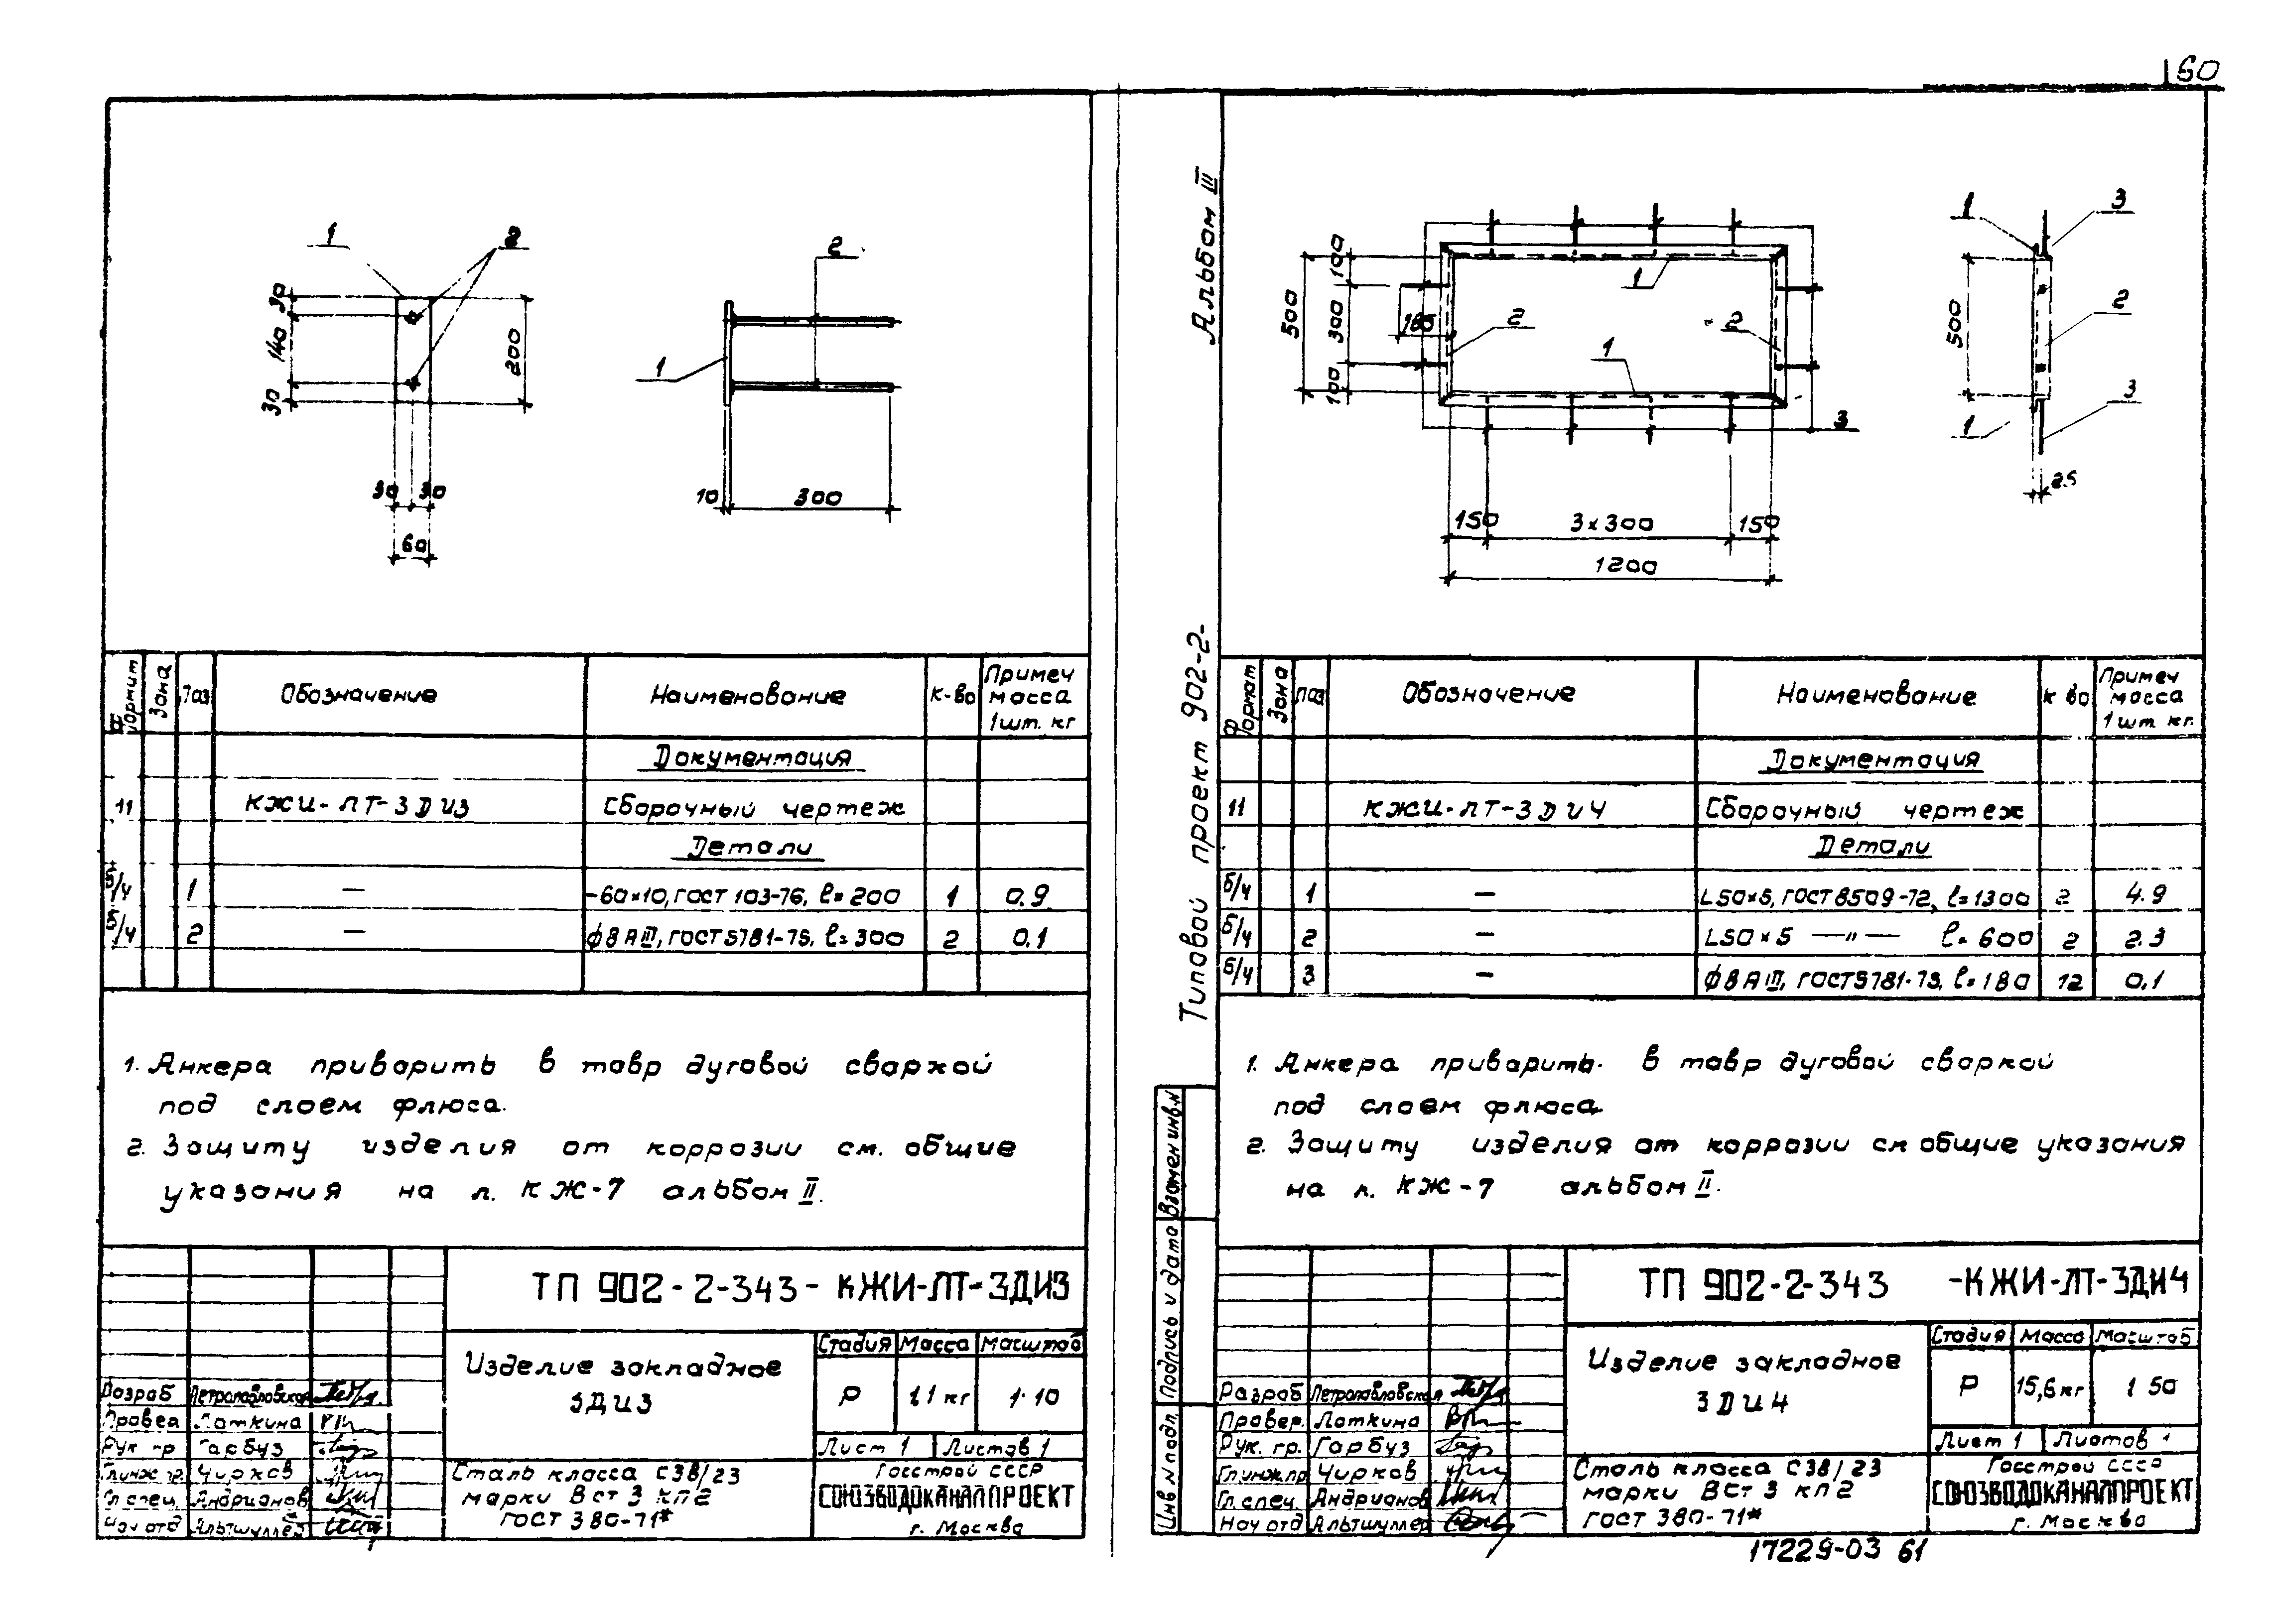 60
1
2
30
140
30
200
30
30
60
2
1
10
300
Формат
Зона
Поз
Обозначение
Наименование
К-во
Примеч масса 1шт. кг
Документация
11
КЖИ-ЛТ-ЗДИ3
Сборочный чертеж
Детали
Б/ч
1
—
-60×10, ГОСТ 103-76, ℓ=200
1
0.9
Б/ч
2
—
ф8АIII, ГОСТ5781-75, ℓ=300
2
0.1
1. Анкера приварить в тавр дуговой сваркой
под слоем флюса.
2. Защиту изделия от коррозии см. общие
указания на л. КЖ-7 альбом II.
ТП 902-2-343-КЖИ-ЛТ-ЗДИ3
Изделие закладное
ЗДИ3
Стадия
Масса
Масштаб
Р
1.1 кг
1:10
Лист 1
Листов 1
Разраб
Петропавловская
Провер
Лоткина
Рук гр
Гарбуз
Гл инж пр.
Чирков
Гл спец.
Андрианов
Нач отд
Альтшуллер
Сталь класса С38/23
марки ВСт 3 кп2
ГОСТ 380-71*
Госстрой СССР
СОЮЗВОДОКАНАЛПРОЕКТ
г. Москва
Альбом III
Типовой проект 902-2-
Взамен инв.№
Подпись и дата
Инв № подл.
100
500
300
100
185
1
2
2
1
3
150
3×300
150
1200
1
3
500
2
1
3
25
Формат
Зона
Поз
Обозначение
Наименование
К во
Примеч масса 1 шт кг.
Документация
11
КЖИ-ЛТ-ЗДИ4
Сборочный чертеж
Детали
Б/ч
1
—
L50×5, ГОСТ 8509-72, ℓ=1300
2
4.9
Б/ч
2
—
L50×5 —"— ℓ=600
2
2.3
Б/ч
3
—
ф8АIII, ГОСТ5781-75, ℓ=180
12
0.1
1. Анкера приварить в тавр дуговой сваркой
под слоем флюса
2. Защиту изделия от коррозии см общие указания
на л. КЖ-7 альбом II.
ТП 902-2-343 -КЖИ-ЛТ-ЗДИ4
Изделие закладное
ЗДИ4
Стадия
Масса
Масштаб
Р
15,6 кг
1 50
Лист 1
Листов 1
Разраб
Петропавловская
Провер.
Лоткина
Рук. гр.
Гарбуз
Гл инж пр
Чирков
Гл. спец.
Андрианов
Нач отд
Альтшуллер
Сталь класса С38/23
марки ВСт 3 кп2
ГОСТ 380-71*
Госстрой СССР
СОЮЗВОДОКАНАЛПРОЕКТ
г. Москва
17229-03 61